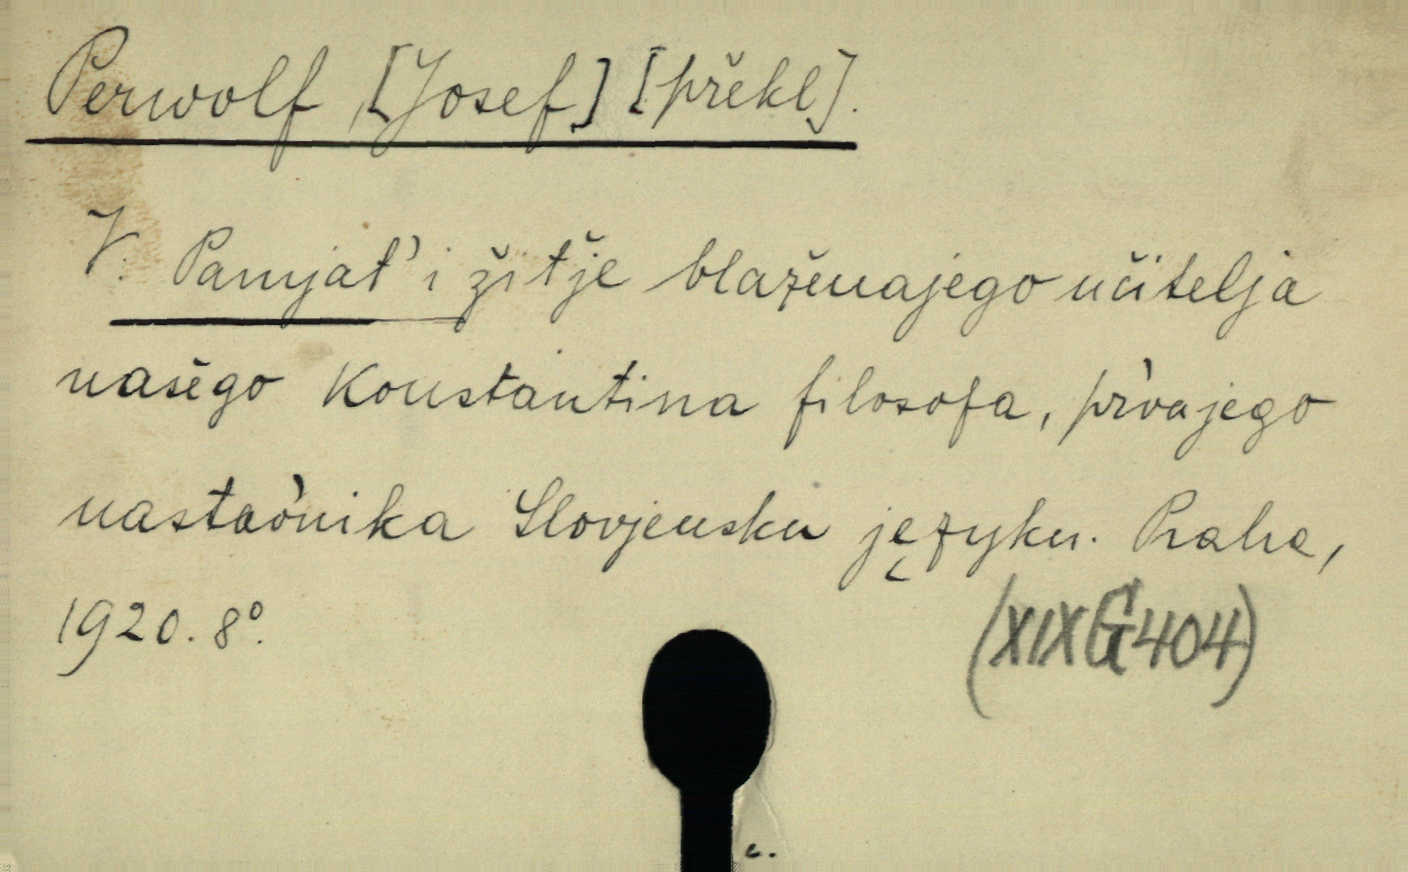 Perwolf, [Josef] [překl].
V. Pamjat' i žitje blaženajego učitelja
našego Konstantina filosofa, pr'vajego
nastav'nika Slovjensku języku. Praha,
1920. 8°.
(XIX G 404)
c.